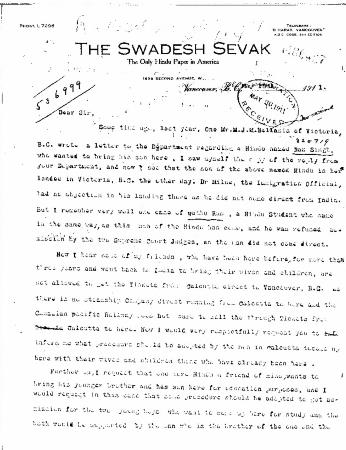 PHONE L7296
TELEGRAMS:
"BIHARAM, VANCOUVER"
THE SWADESH SEVAK
The Only Hindu Paper in America
1628 SECOND AVENUE, W.,
Vancouver, B.C., 1911.
536999
IMMIGRATION
MAY 20 1911
RECEIVED
Dear Sir,
Some time ago, last year, One Mr. of Victoria,
B.C. wrote a letter to the Department regarding a Hindu named Singh,
who wanted to bring his son here. I saw myself the copy of the reply from
your Department, and now I see that the son of the above named Hindu is
landed in Victoria, B.C. the other day. Dr Milne, the immigration official,
had no objection in his landing there as he did not come direct from India.
But I remember very well one case of Ram, a Hindu Student who came
in the same way, as this son of the Hindu has come, and he was refused
mission by the two Supreme Court Judges, as the man did not come direct.
Now I hear some of my friends, who have been here before, for more than
three years and went back to India to bring their wives and children, are
not allowed to get the Tickets from Calcutta direct to Vancouver, B.C. as
there is no steamship Company direct running from Calcutta to here and the
Canadian Pacific Railway does not care to sell the through Tickets from
Calcutta to here. Now I would very respectfully request you to
inform me what procedure should be adopted by the men in Calcutta to
here with their wives and children those who have already been here.
Further , I request that one more Hindu a friend of mine, wants to
bring his younger brother and his son here for education purposes, and I
would request in this case that some procedure should be adopted to get
mission for the two young boys who want to come up here for study and the
both would be supported by the man who is the brother of the one and the